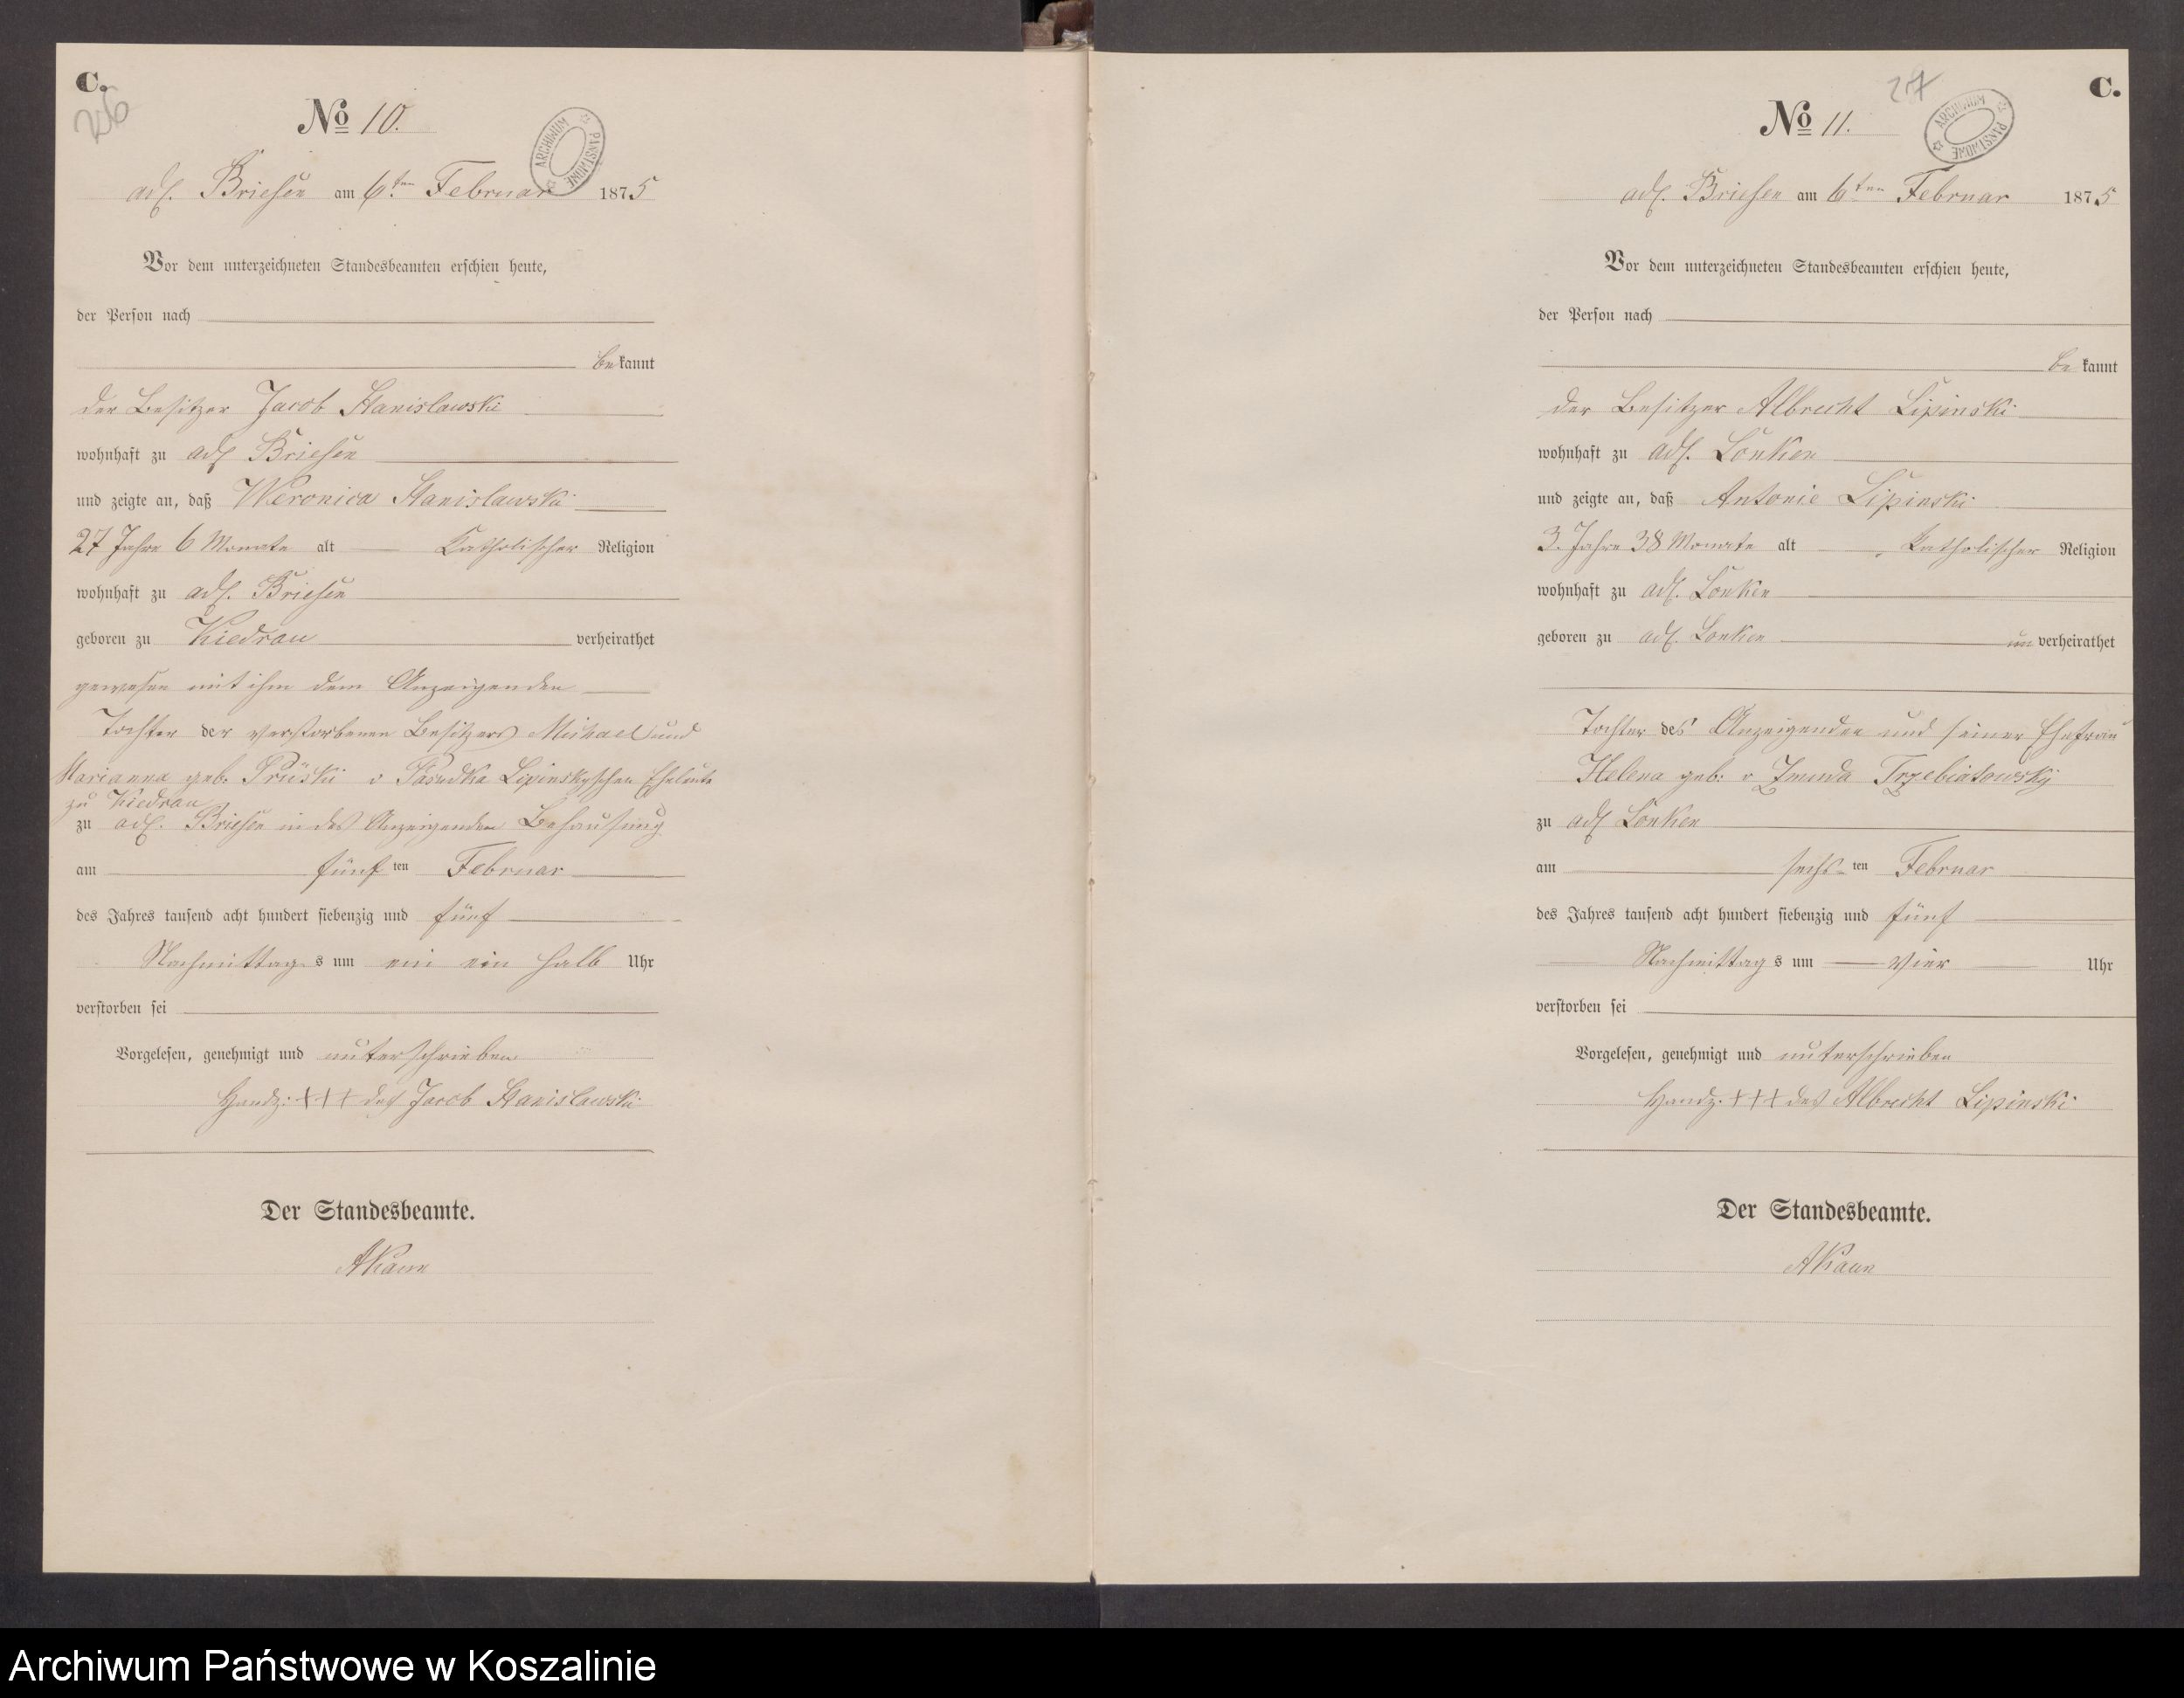 C.
26
No 10.
ARCHIWUM PAŃSTWOWE
adl. Briesen am 6ten Februar 1875
Vor dem unterzeichneten Standesbeamten erschien heute,
der Person nach
bekannt
der Besitzer Jacob Stanislawski
wohnhaft zu adl Briesen
und zeigte an, daß Weronica Stanislawski
27 Jahre 6 Monate alt Katholischer Religion
wohnhaft zu adl. Briesen
geboren zu Kiedrau verheirathet
gewesen mit ihm dem Anzeigenden
Tochter der verstorbenen Besitzers Michael und
Marianna geb. v Lipinskyschen Eheleute
zu Kiedrau
zu adl. Briesen in des Anzeigenden Behausung
am fünften Februar
des Jahres tausend acht hundert siebenzig und fünf
Nachmittags um ein ein halb Uhr
verstorben sei
Vorgelesen, genehmigt und unterschrieben
Handz: +++ des Jacob Stanislawski
Der Standesbeamte.
C.
27
No 11.
ARCHIWUM PAŃSTWOWE
adl. Briesen am 6ten Februar 1875
Vor dem unterzeichneten Standesbeamten erschien heute,
der Person nach
bekannt
der Besitzer Albrecht Lipinski
wohnhaft zu adl. Lonken
und zeigte an, daß Antonie Lipinski
3. Jahre 38 Monate alt Katholischer Religion
wohnhaft zu adl. Lonken
geboren zu adl. Lonken unverheirathet
Tochter des Anzeigenden und seiner Ehefrau
Helena geb: v Zmuda Trzebiatowsky
zu adl Lonken
am sechsten Februar
des Jahres tausend acht hundert siebenzig und fünf
Nachmittags um vier Uhr
verstorben sei
Vorgelesen, genehmigt und unterschrieben
Handz. +++ des Albrecht Lipinski
Der Standesbeamte.
Archiwum Państwowe w Koszalinie